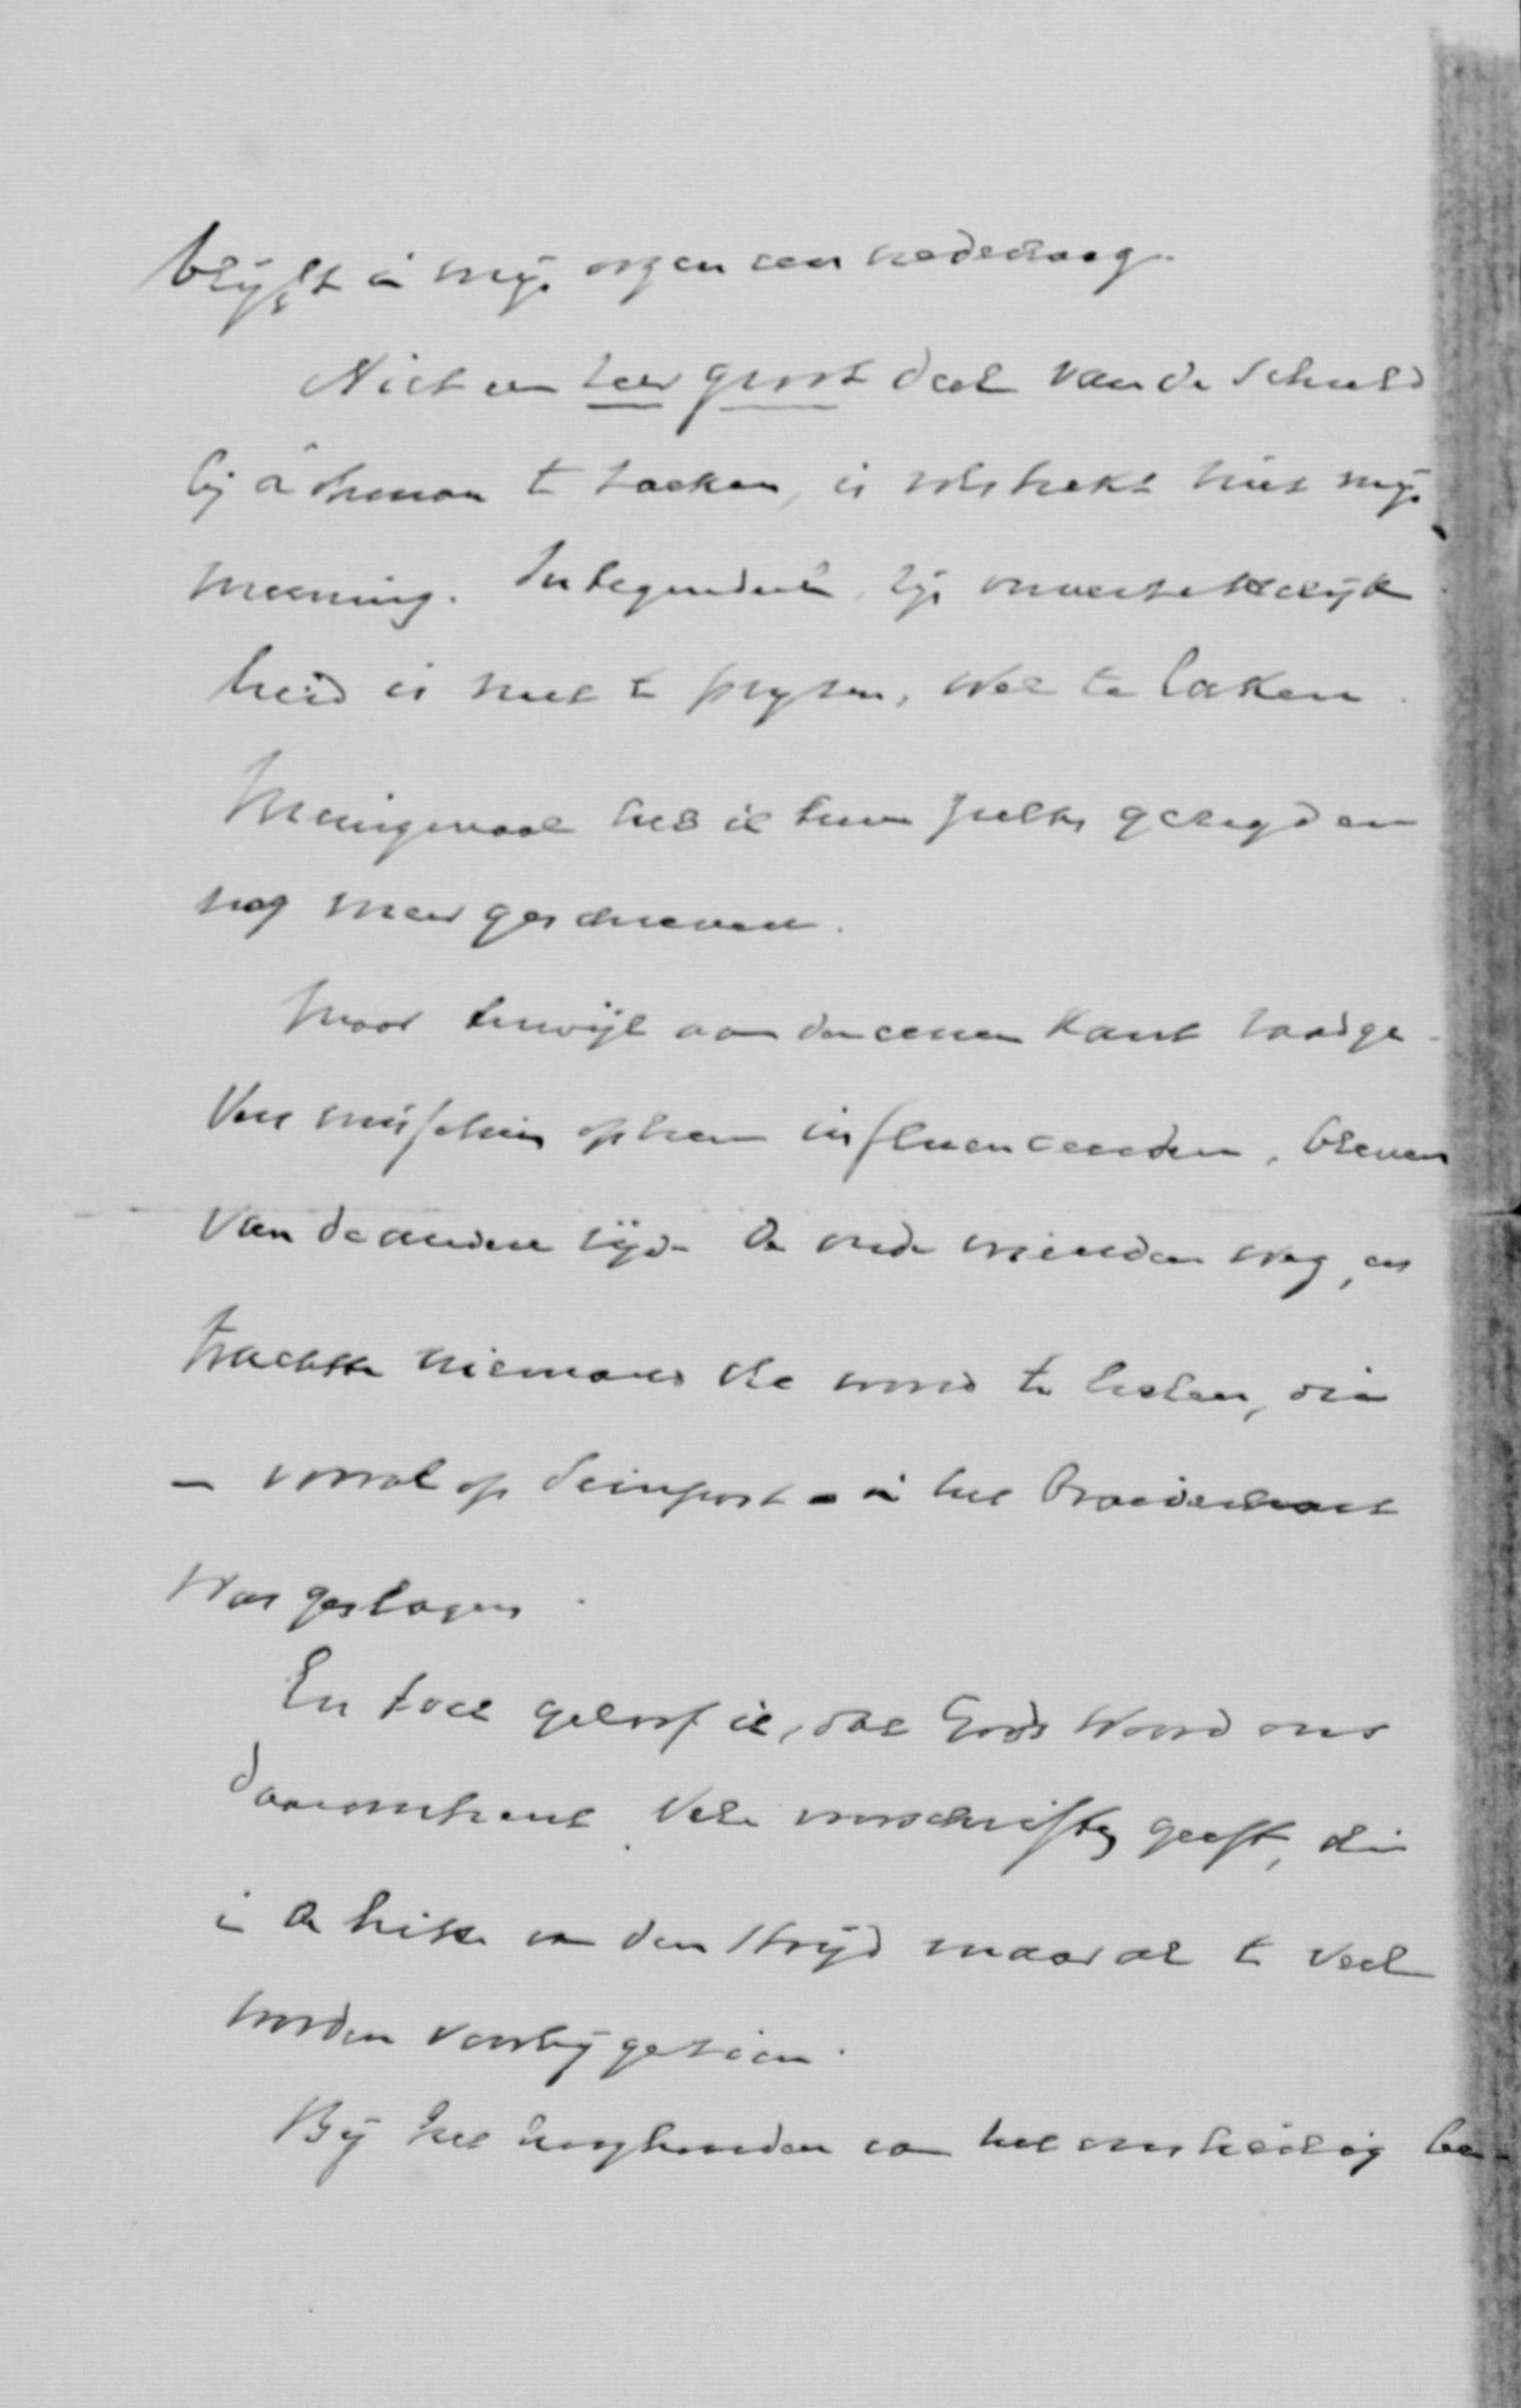 blijft in mijn oogen een nederlaag.
Niet een zeer groot deel van de schuld
bij te zoeken, is volstrekt niet mijn
meening. Integendeel, zijn onverzettelijk
heid is niet te prijzen, wel te laken.
Menigmaal heb ik hem zulks gezegd en
nog meer geschreven.
Maar terwijl aan den eenen kant raadge-
vers misschien op hem influenceerden, bleven
van de andere zijde de oude vrienden weg, en
trachtte niemand de wond te heelen, die
– vooral op Seinpost – in het broederhart
was geslagen.
En toch geloof ik, dat Gods Woord ons
daaromtrent vele voorschriften geeft, die
in de hitte van den strijd maar al te veel
worden voorbijgezien.
Bij het hooghouden van het onpartijdig be-